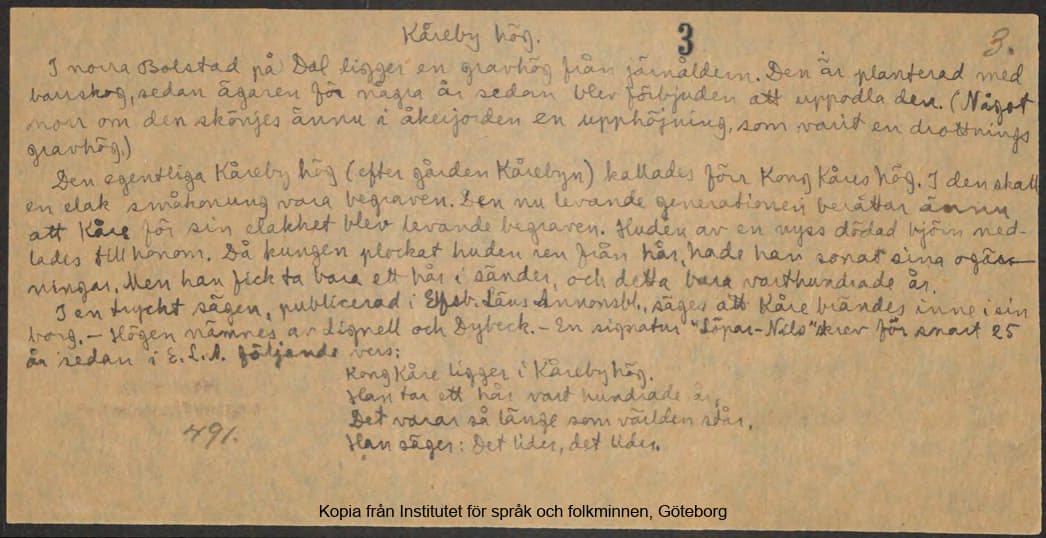 Kåreby hög.
3
3.
I norra Bolstad på Dal ligger en gravhög från järnåldern. Den är planterad med
barrskog, sedan ägaren för några år sedan blev förbjuden att uppodla den. (Något
norr om den skönjes ännu i åkerjorden en upphöjning, som varit en drottnings
gravhög.)
Den egentliga Kåreby hög (efter gården Kårebyn) kallades förr Kong Kåres hög. I den skall
en elak småkonung vara begraven. Den nu levande generationen berättar ännu
att Kåre för sin elakhet blev levande begraven. Huden av en nyss dödad björn ned-
lades till honom. Då kungen plockat huden ren från hår, hade han sonat sina ogär-
ningar. Men han fick ta bara ett hår i sänder, och detta bara varthundrade år.
I en tryckt sägen, publicerad i Elfsb. Läns Annonsbl., säges att Kåre brändes inne i sin
borg. – Högen nämnes av Lignell och Dybeck. – En signatur "Löpar-Nils" skrev för snart 25
år sedan i E.L.A. följande vers:
Kong Kåre ligger i Kåreby hög.
Han tar ett hår vart hundrade år,
Det varar så länge som världen står.
Han säger: Det lider, det lider.
491.
Kopia från Institutet för språk och folkminnen, Göteborg